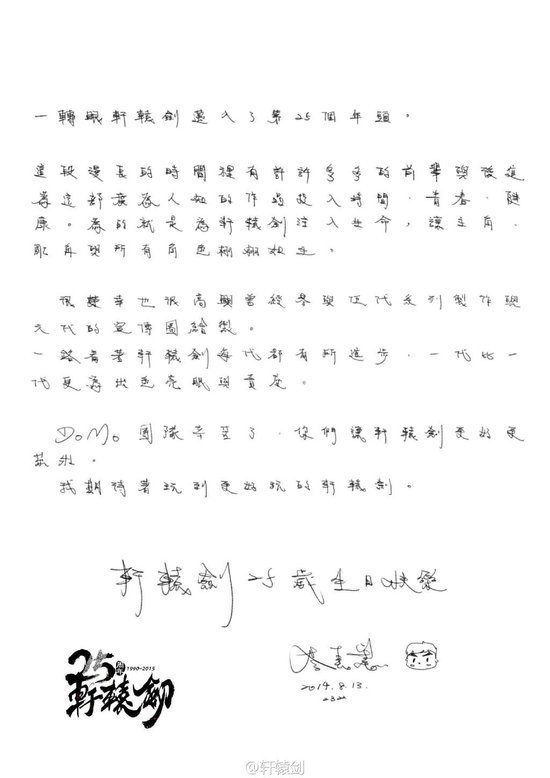 一轉眼軒轅劍邁入了第25個年頭。
這段漫長的時間裡有許許多多的前輩與後進
為這部廣為人知的作品投入時間、青春、健
康。為的就是為軒轅劍注入生命，讓主角、
配角與所有角色栩栩如生。
很榮幸也很高興曾經參與伍代系列製作與
六代的宣傳圖繪製。
一路看著軒轅劍每代都有所進步，一代比一
代更為出色亮眼與賣座。
DOMO 團隊辛苦了，你們讓軒轅劍更好更
茁壯。
我期待著玩到更好玩的軒轅劍。
軒轅劍 25 歲生日快樂
2014.8.13.
25 週年 1990-2015
軒轅劍
@轩辕剑